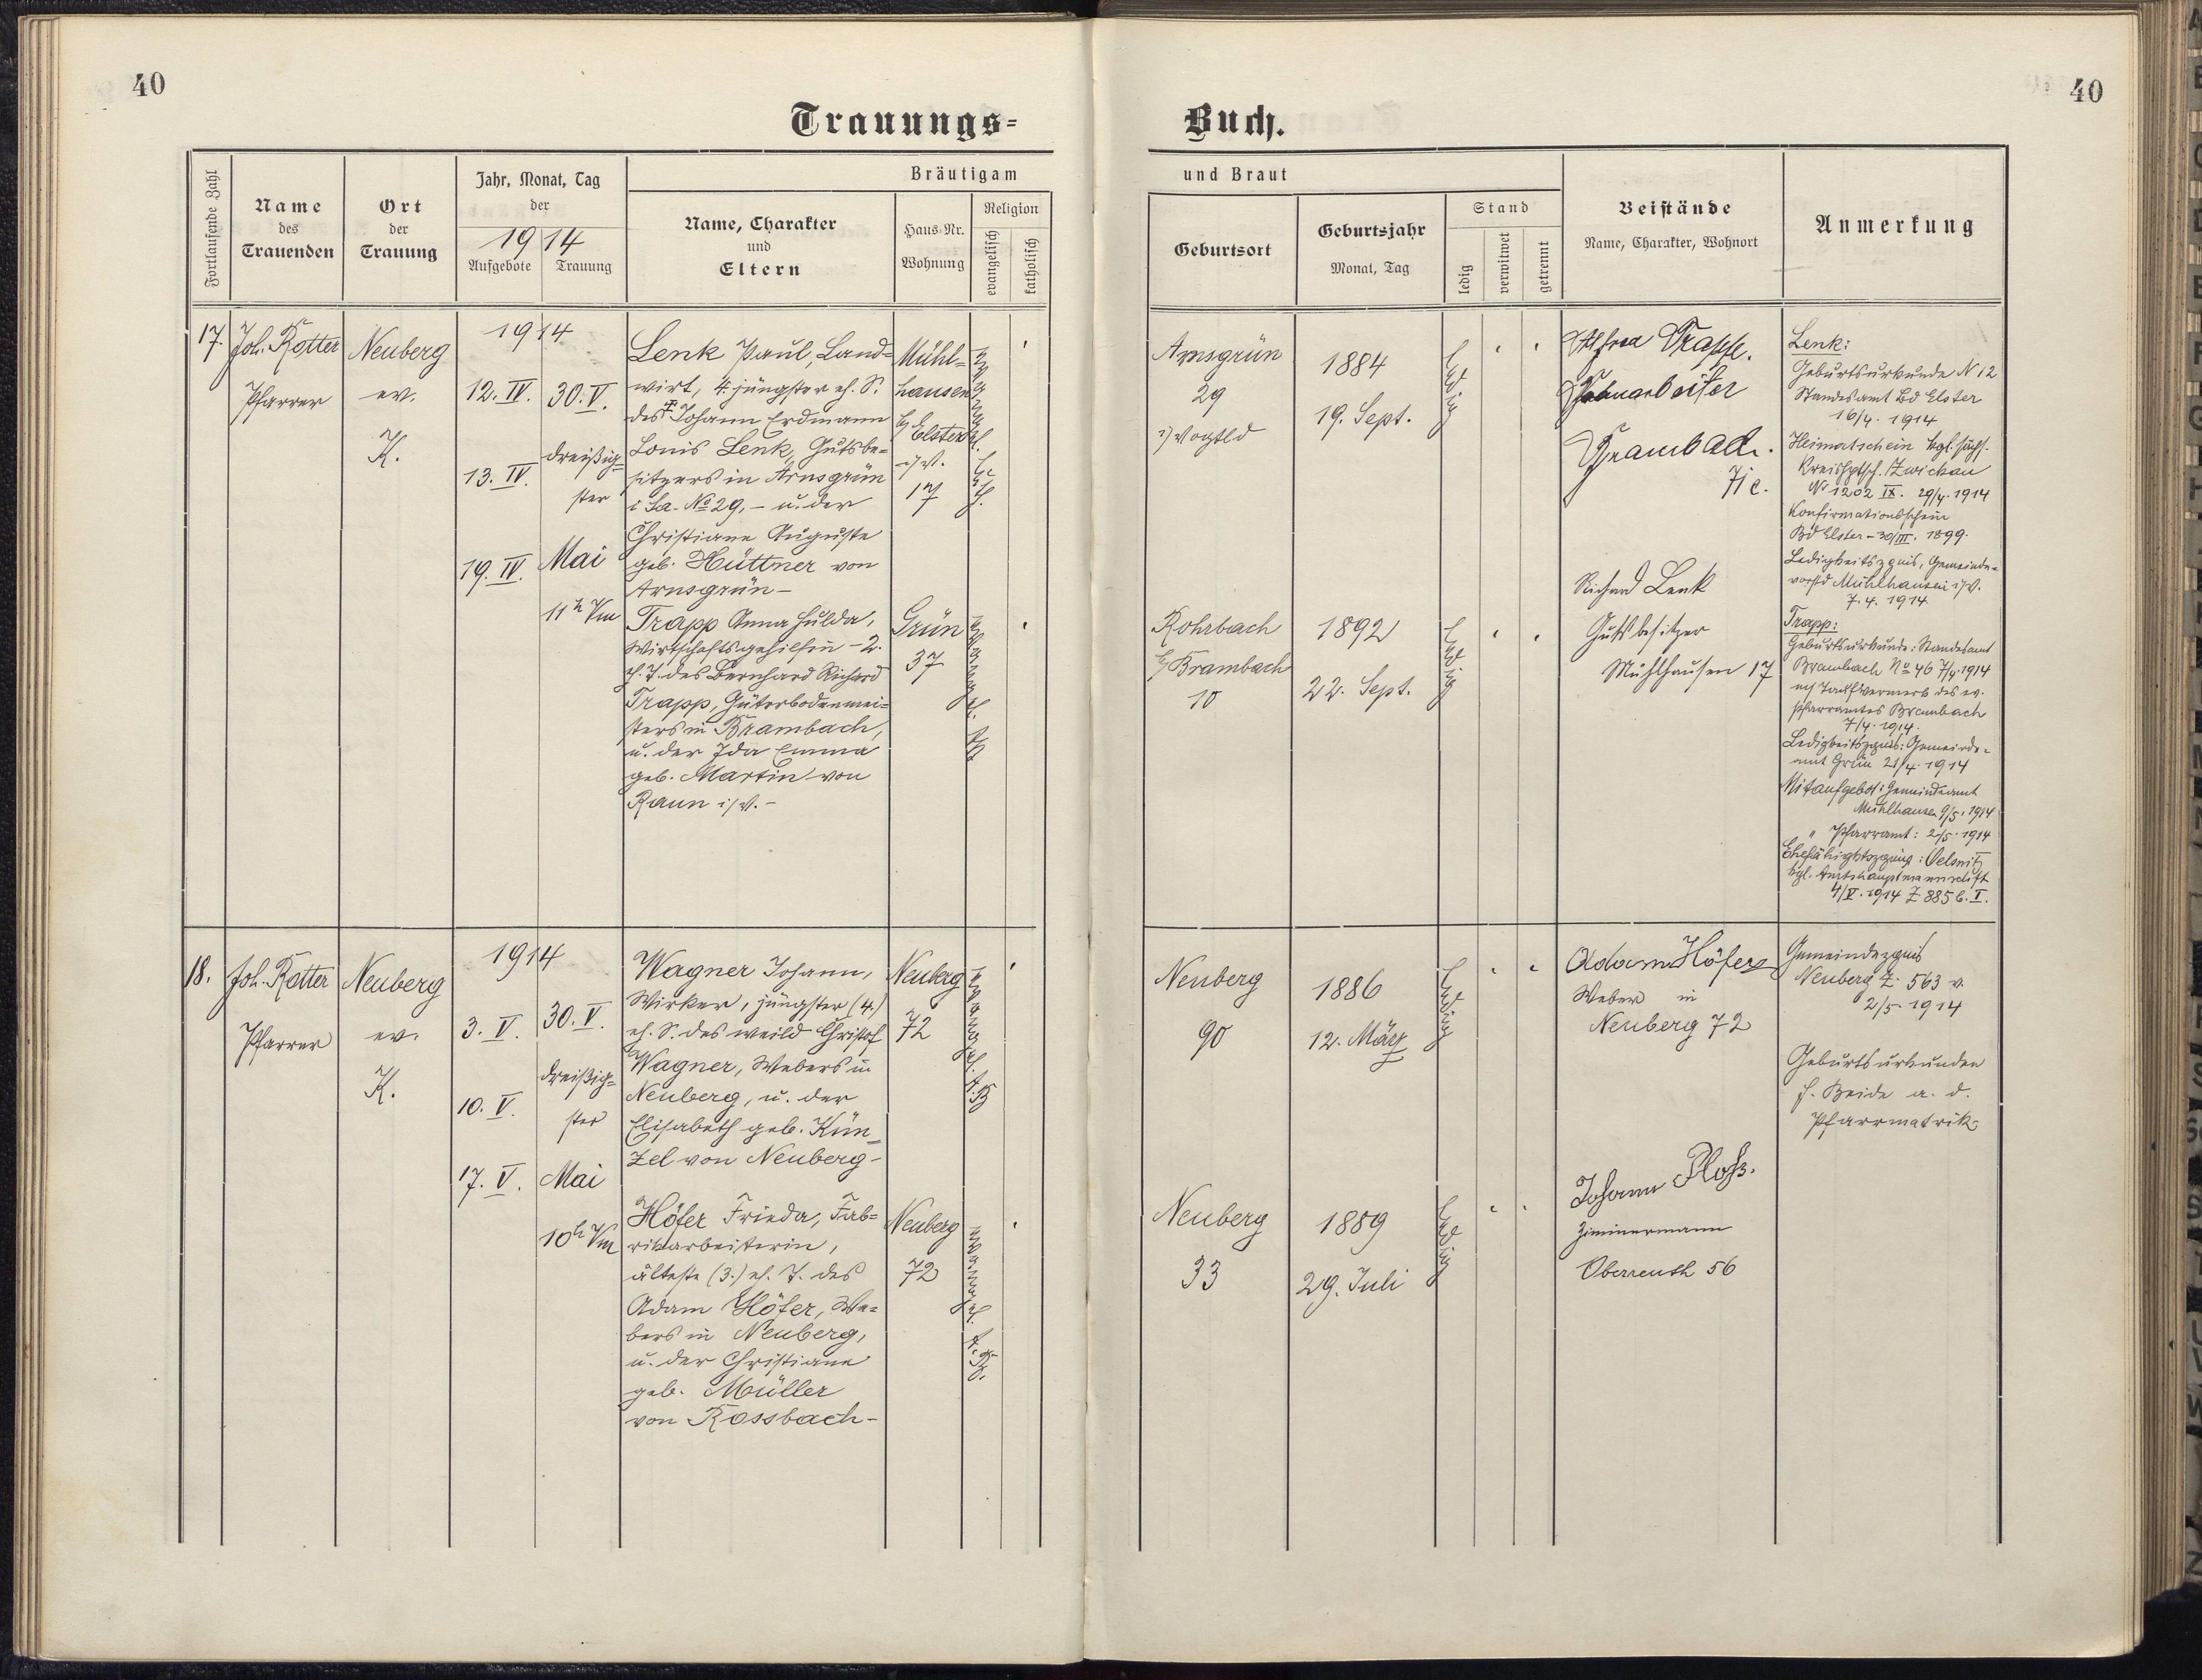 40
40
Trauungs=
Buch.
Fortlaufende Zahl
Name
des
Trauenden
Ort
der
Trauung
Jahr, Monat, Tag
der
1914
Aufgebote
Trauung
Bräutigam
Name, Charakter
und
Eltern
Haus-Nr.
Wohnung
Religion
evangelisch
katholisch
und Braut
Geburtsort
Geburtsjahr
Monat, Tag
Stand
ledig
verwitwet
getrennt
Beistände
Name, Charakter, Wohnort
Anmerkung
17.
Joh. Rotter
Pfarrer
Neuberg
ev.
K.
1914
12. IV.
13. IV.
19. IV.
30. V.
dreißig=
ster
Mai
11 h Vm
Lenk Paul, Land=
wirt, 4. jüngster eh. S.
des Johann Erdmann
Louis Lenk, Gutsbe=
sitzers in Arnsgrün
i Sa. No 29, – u. der
Christiane Auguste
geb. Hüttner von
Arnsgrün –
Mühl=
hausen
b/ Elster
i/V.
17
evangel.
luth.
Trapp Anna Hulda,
Wirtschaftsgehilfin – 2.
eh. T. des Bernhard Richard
Trapp, Güterbodenmei=
sters in Brambach,
u. der Ida Emma
geb. Martin von
Raun i/V. –
Grün
37
evangel.
AB
Arnsgrün
29
i/Vogtld
1884
19. Sept.
ledig
Rohrbach
b/ Brambach
10
1892
22. Sept.
ledig
Trapp.
Bahnarbeiter
Brambach.
71 c.
Richard Lenk
Gutsbesitzer
Mühlhausen 17
Lenk:
Geburtsurkunde N 12
Standesamt Bd Elster
16/4. 1914
Heimatschein kgl. sächs.
Kreishptsch. Zwickau
No 1202 IX. 29/4. 1914
Konfirmationsschein
Bd Elster – 30/III. 1899.
Ledigkeitszgnis, Gemeinde=
vorstd Mühlhausen i/V.
7. 4. 1914
Trapp:
Geburtsurkunde: Standesamt
Brambach No 46 7/4. 1914
Taufvermerk des ev.
Pfarramtes Brambach
7/4. 1914
Ledigkeitszgnis: Gemeinde=
amt Grün 21/4. 1914
Mitaufgebot: Gemeindeamt
Mühlhausen 9/5. 1914
" Pfarramt: 2/5. 1914
Ehefähigktszgnis: Oelsnitz
kgl. Amtshauptmannschft
4/V. 1914 Z 885 b. I.
18.
Joh. Rotter
Pfarrer
Neuberg
ev.
K.
1914
3. V.
10. V.
17. V.
30. V.
dreißig=
ster
Mai
10 h Vm
Wagner Johann,
Wirker, jüngster (4.)
eh. S. des weild Christof
Wagner, Webers in
Neuberg, u. der
Elisabeth geb. Kün=
zel von Neuberg –
Neuberg
72
evangel.
A.B
Höfer Frieda, Fab=
rikarbeiterin,
älteste (3.) eh. T. des
Adam Höfer, We=
bers in Neuberg,
u. der Christiane
geb. Müller
von Rossbach –
Neuberg
72
evangel.
A.B.
Neuberg
90
1886
12. März
ledig
Neuberg
33
1889
29. Juli
ledig
Adam Höfer
Weber in
Neuberg 72
Johann Ploß.
Zimmermann
Oberreuth 56
Gemeindezgnis
Neuberg Z. 563 v.
2/5. 1914
Geburtsurkunden
f. Beide a. d.
Pfarrmatrik.